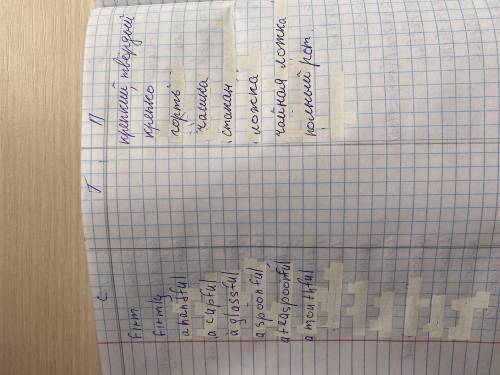 С Т П
firm крепкий, твердый
firmly крепко
a handful горсть
a cupful чашка
a glassful стакан
a spoonful ложка
a teaspoonful чайная ложка
a mouthful полный рот